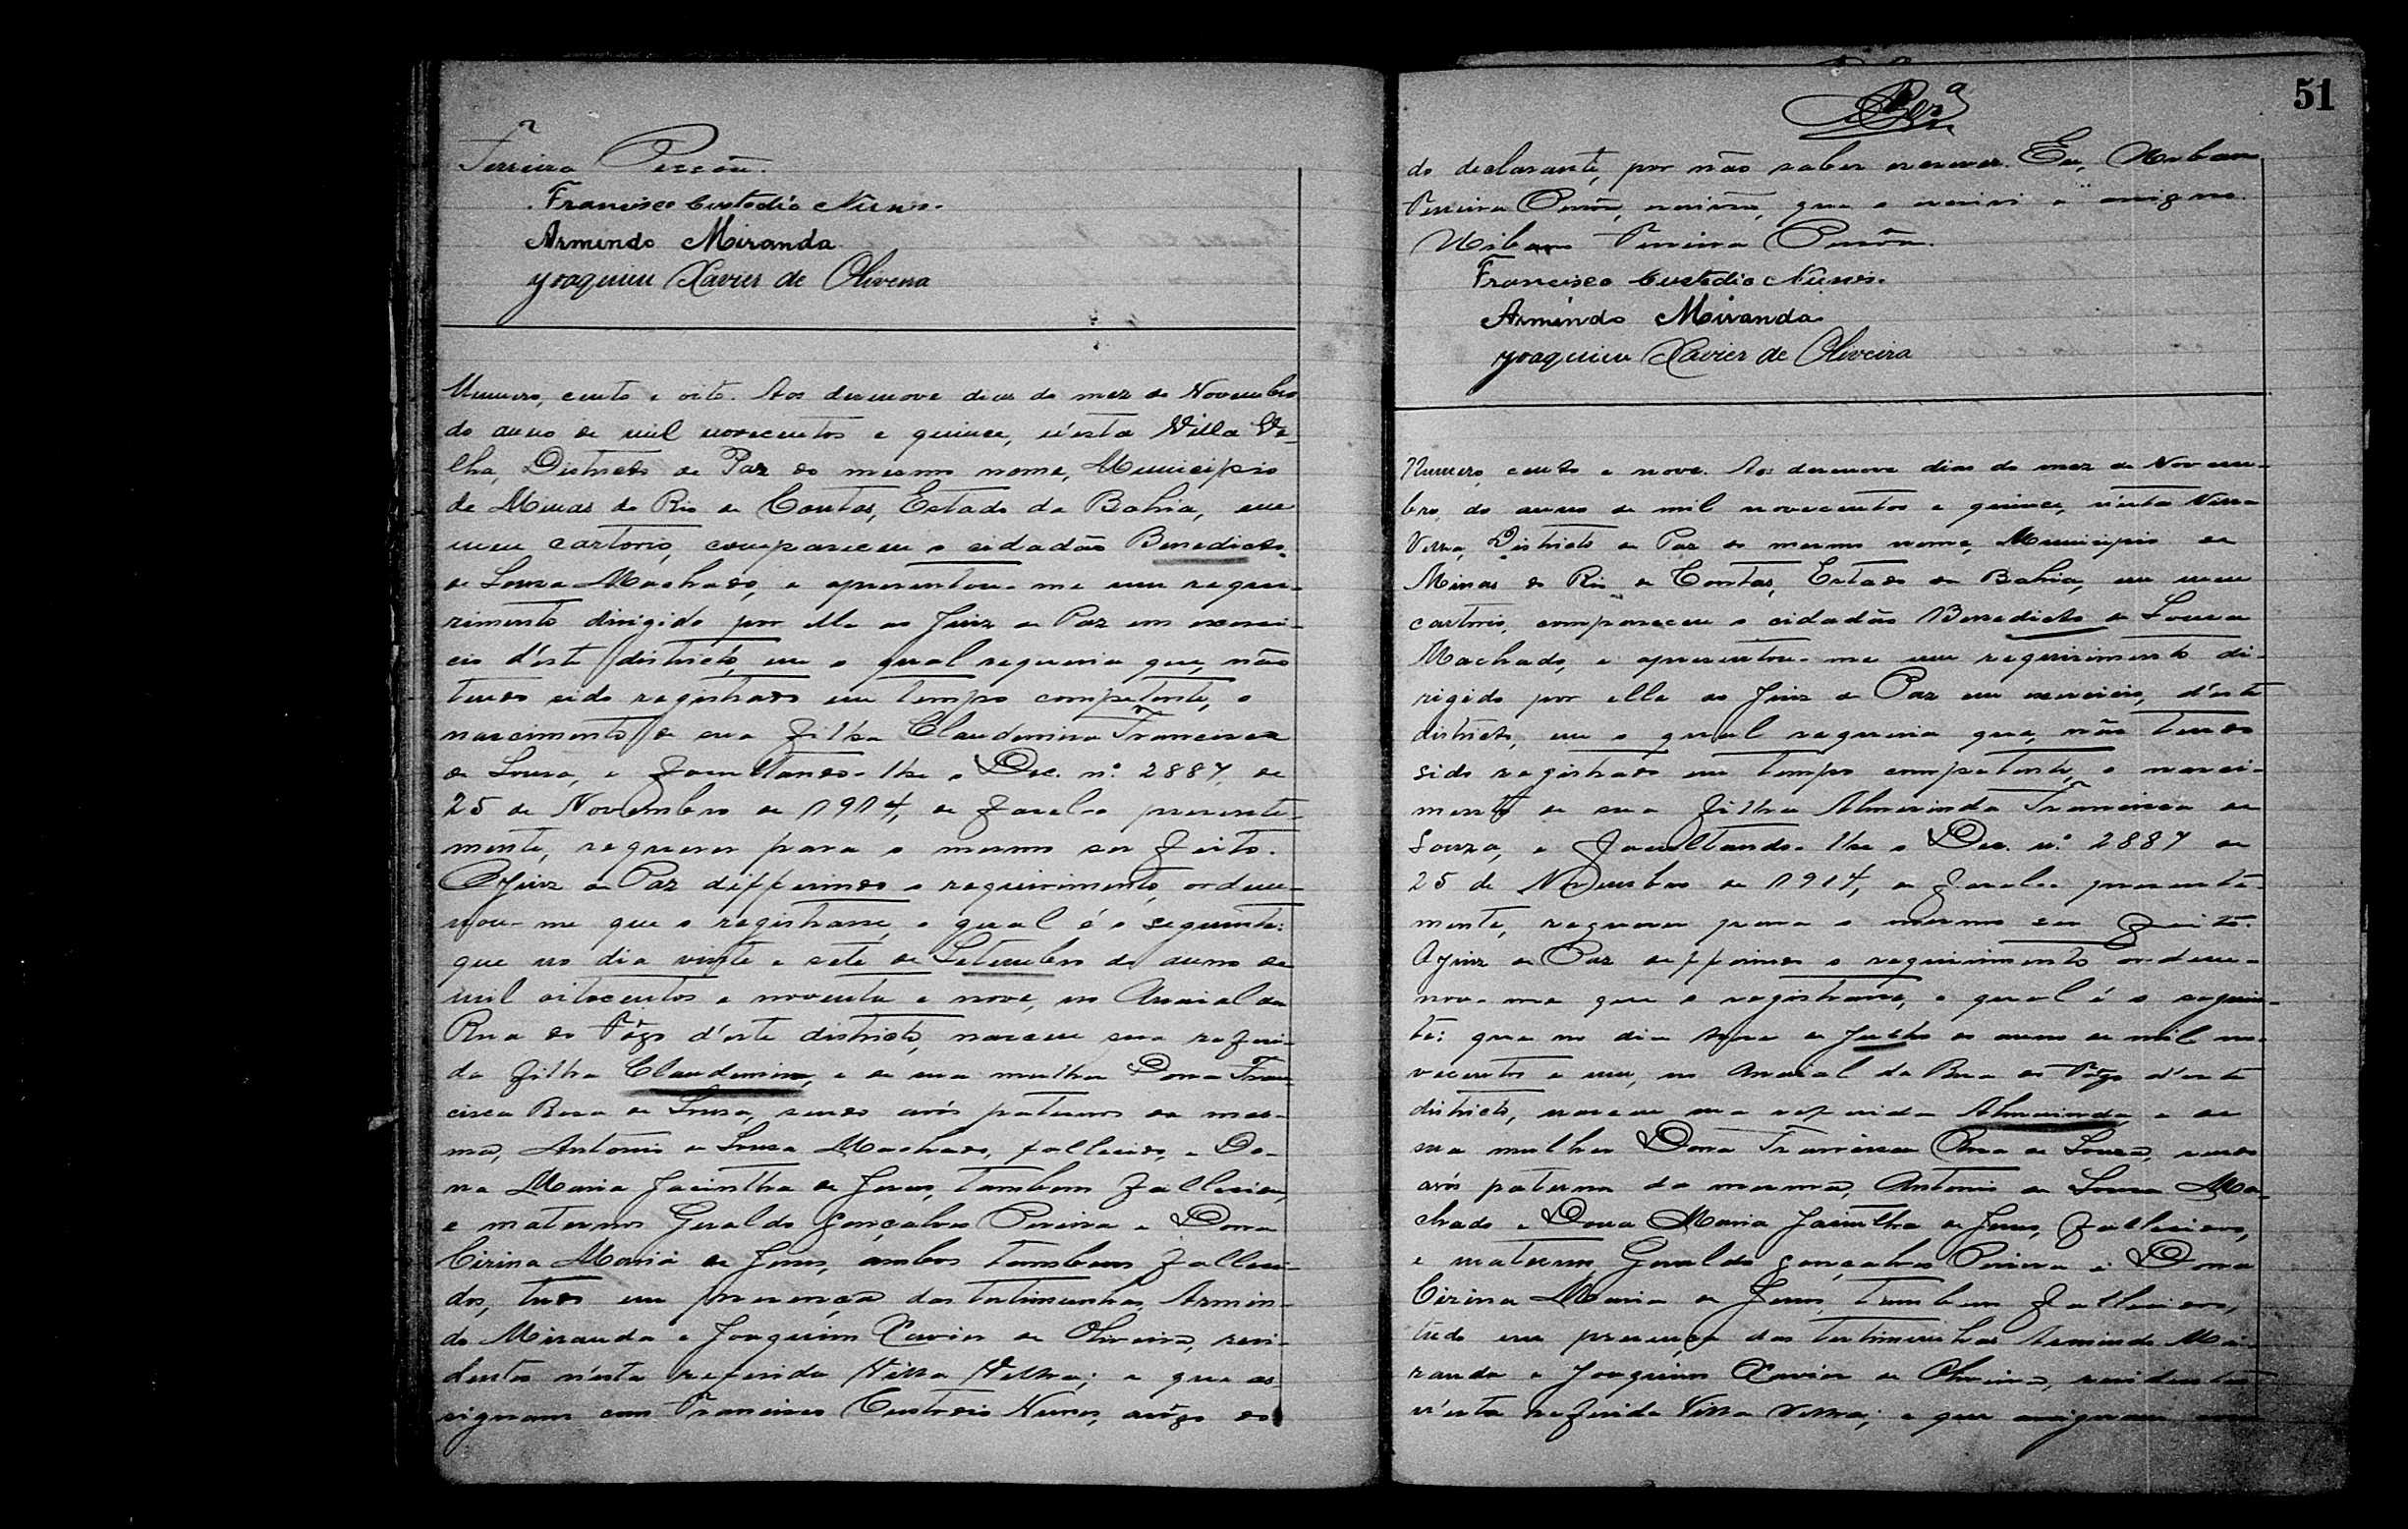 Ferreira Pessôa.
Francisco Custodio Nunes.
Armindo Miranda
Joaquim Xavier de Oliveira
Numero, cento e oito. Aos desenove dias do mez de Novembro
do anno de mil novecentos e quinze, n'esta Villa Ve-
lha, Districto de Paz do mesmo nome, Municipio
de Minas do Rio de Contas, Estado da Bahia, em
meu cartorio, compareceu o cidadão Benedicto
de Souza Machado, e apresentou-me um reque-
rimento dirigido por elle ao Juiz de Paz em exerci-
cio d'este districto, em o qual requeria que, não
tendo sido registrado em tempo competente, o
nascimento de sua filha Claudemira Francisca
de Souza, e facultando-lhe o Dec. nº. 2887, de
25 de Novembro de 1914, de fazel-o presente-
mente, requerer para o mesmo ser feito.
O Juiz de Paz differindo o requirimento, orden-
nou-me que o registrasse, o qual é o seguinte:
que no dia vinte e sete de Setembro do anno de
mil oitocentos e noventa e nove, no Arraial da
Rua do Fôgo d'este districto, nasceu sua referi-
da filha Claudemira, e de sua mulher Dona Fran-
cisca Rosa de Souza, sendo avós paternos da mes-
ma, Antonio de Souza Machado, fallecido, e Do-
na Maria Jacintha de Jesus, tambem fallecida,
e maternos Geraldo Gonçalves Pereira e Dona
Cirina Maria de Jesus, ambos tambem falleci-
dos, tudo em presença das testimunhas, Armin-
do Miranda e Joaquim Xavier de Oliveira, resi-
dentes n'esta referida Villa Velha; e que as
signam com Francisco Custodio Nunes, arôgo do
51
do declarante, por não saber escrever. Eu, Urbano
Ferreira Pessôa, escrivão, que o escrivi e assigno.
Urbano Ferreira Pessôa.
Francisco Custodio Nunes.
Armindo Miranda
Joaquim Xavier de Oliveira
Numero, cento e nove. Aos desenove dias do mez de Novem-
bro, do anno de mil novecentos e quinze, n'esta Villa
Velha, Districto de Paz do mesmo nome, Municipio de
Minas do Rio de Contas, Estado da Bahia, em meu
cartorio, compareceu o cidadão Benedicto de Souza
Machado, e apresentou-me um requirimento di-
rigido por elle ao Juiz de Paz em exercicio, d'este
districto, em o qual requeria que, não tendo
sido registrado em tempo competente, o nasci-
mento de sua filha Almerinda Francisca de
Souza, e facultando-lhe o Dec. nº. 2887 de
25 de Novembro de 1914, de fazel-o presente-
mente, requerer para o mesmo ser feito.
O Juiz de Paz defferindo o requirimento orden-
nou-me que o registrasse, o qual é o seguin-
te: que no dia nove de Julho do anno de mil no-
vecentos e um, no Arraial da Rua do Fôgo d'este
districto, nasceu sua referida Almerinda, e de
sua mulher Dona Francisca Rosa de Souza, sendo
avós paternos da mesma, Antonio de Souza Ma-
chado e Dona Maria Jacintha de Jesus, fallecidos,
e maternos, Geraldo Gonçalves Pereira e Dona
Cirina Maria de Jesus, tambem fallecidos,
tudo em presença das testimunhas Armindo Mi-
randa e Joaquim Xavier de Oliveira, residentes
n'esta referida Villa Velha; e que assignam com